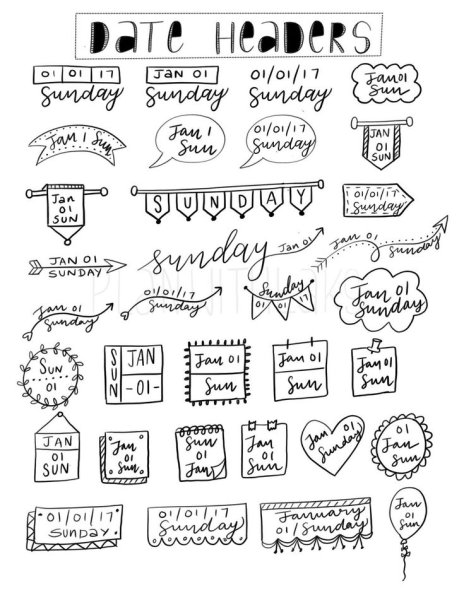 DATE HEADERS
01 01 17
Sunday
JAN 01
Sunday
01/01/17
Sunday
Jan 01
Sun
Jan 1 Sun
Jan 1
Sun
01/01/17
Sunday
JAN
01
SUN
Jan
01
SUN
SUNDAY
01/01/17
Sunday
JAN 01
SUNDAY
Sunday
Jan 01
Jan 01
Sunday
Jan 01
Sunday
01/01/17
Sunday
Sunday
01 01 17
Jan 01
Sunday
Sun
01
SUN
JAN
-01-
Jan 01
Sun
Jan 01
Sun
Jan 01
Sun
JAN
01
SUN
Jan
01
Sun
Sun
01
Jan
Jan
01
Sun
Jan 01
Sunday
01
Jan
Sun
01/01/17
SUNDAY
01/01/17
Sunday
January
01/Sunday
Jan
01
Sun